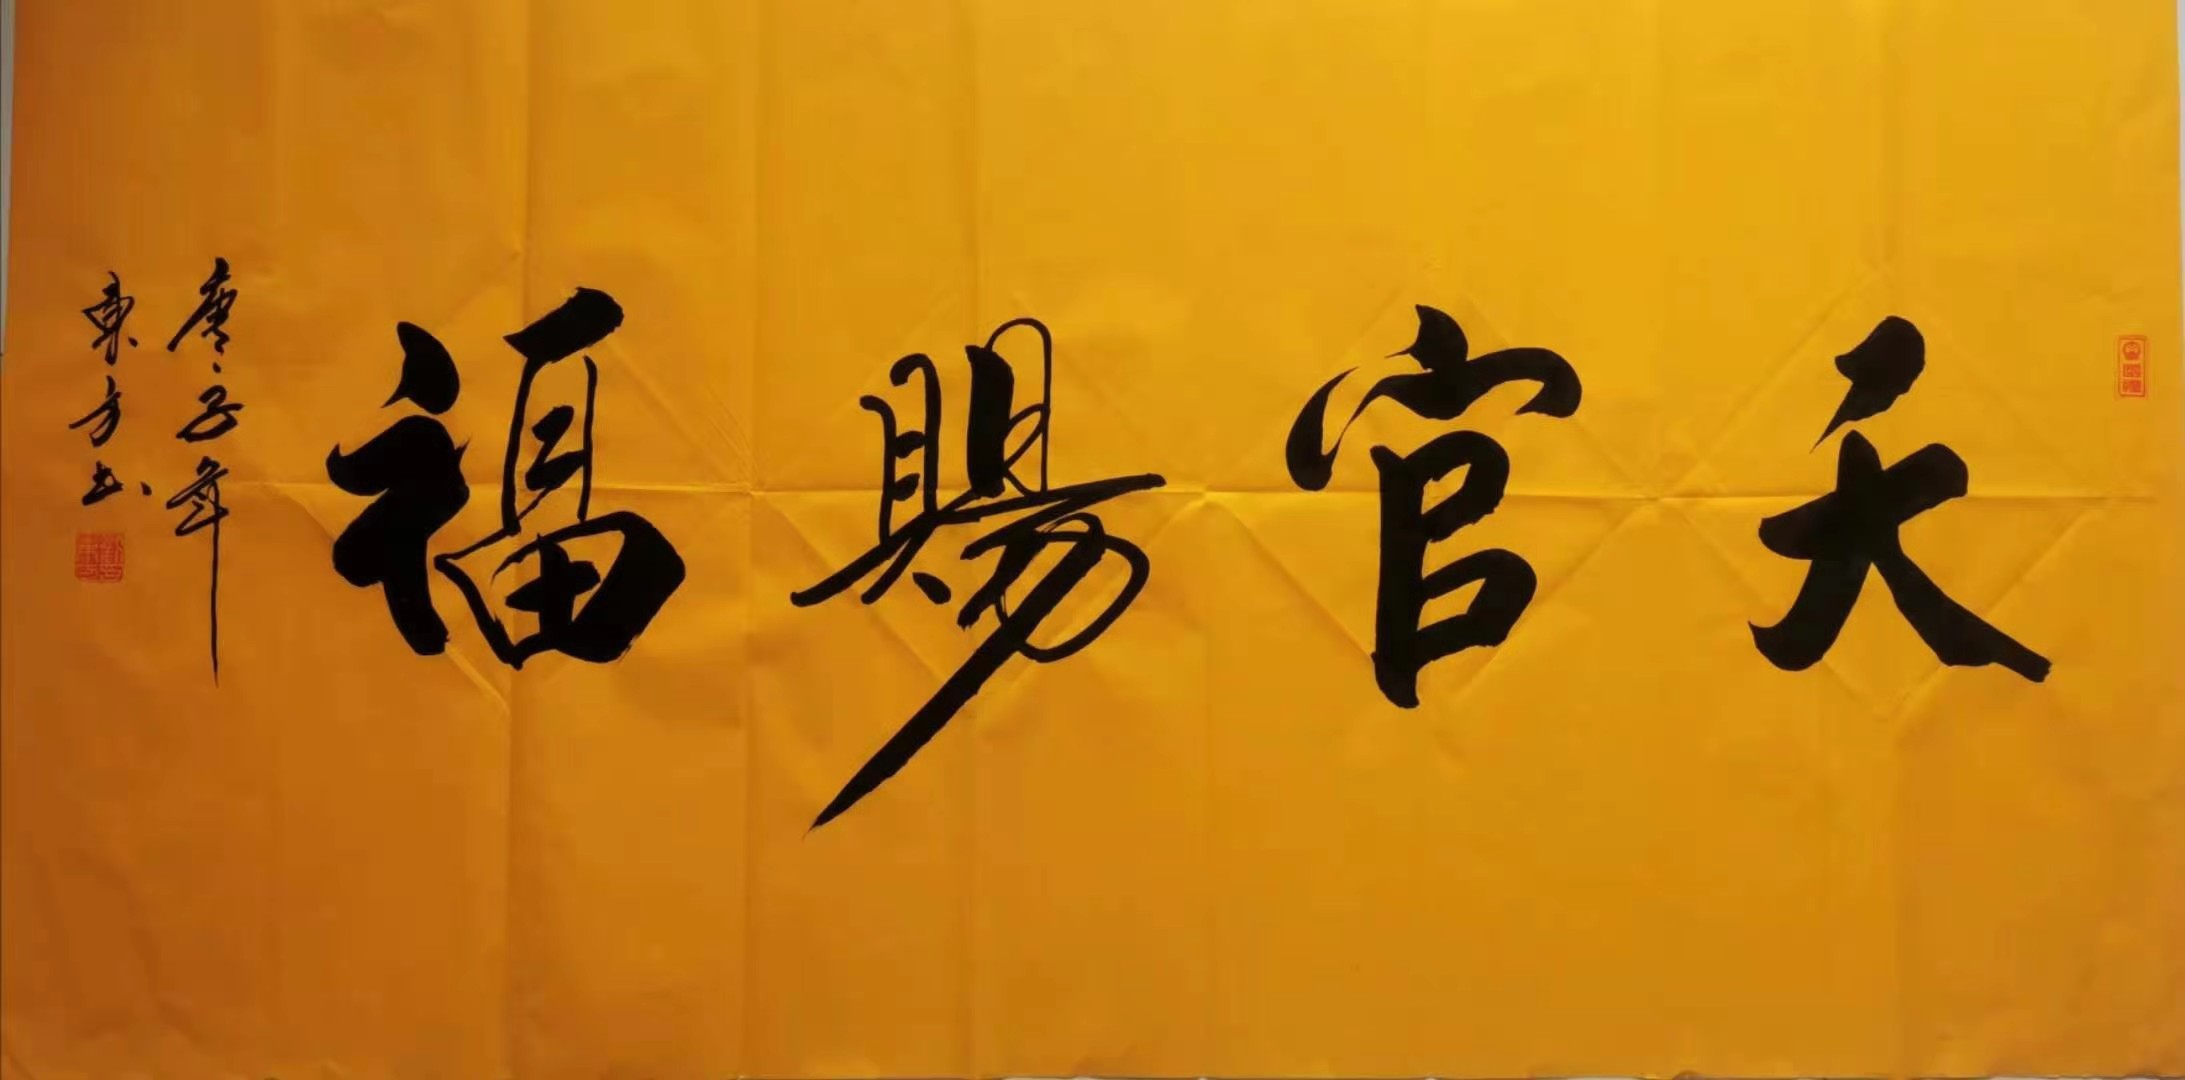 天官賜福
庚子年
東方书